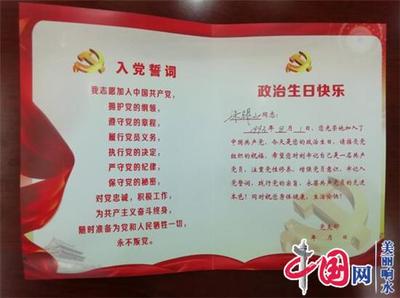 入党誓词
我志愿加入中国共产党,
拥护党的纲领,
遵守党的章程,
履行党员义务,
执行党的决定,
严守党的纪律,
保守党的秘密,
对党忠诚,积极工作,
为共产主义奋斗终身,
随时准备为党和人民牺牲一切,
永不叛党。
政治生日快乐
同志:
月1日,您光荣地加入了
中国共产党。今天是您的政治生日,请接受党
组织的祝福。希望您时刻牢记自己是一名共产
党员,注重党性修养,增强党员意识,牢记入
党誓词,践行党的宗旨,永葆共产党员的先进
本色!同时祝您身体健康,生活愉快!
党支部
年 月 日
中国网
美丽响水